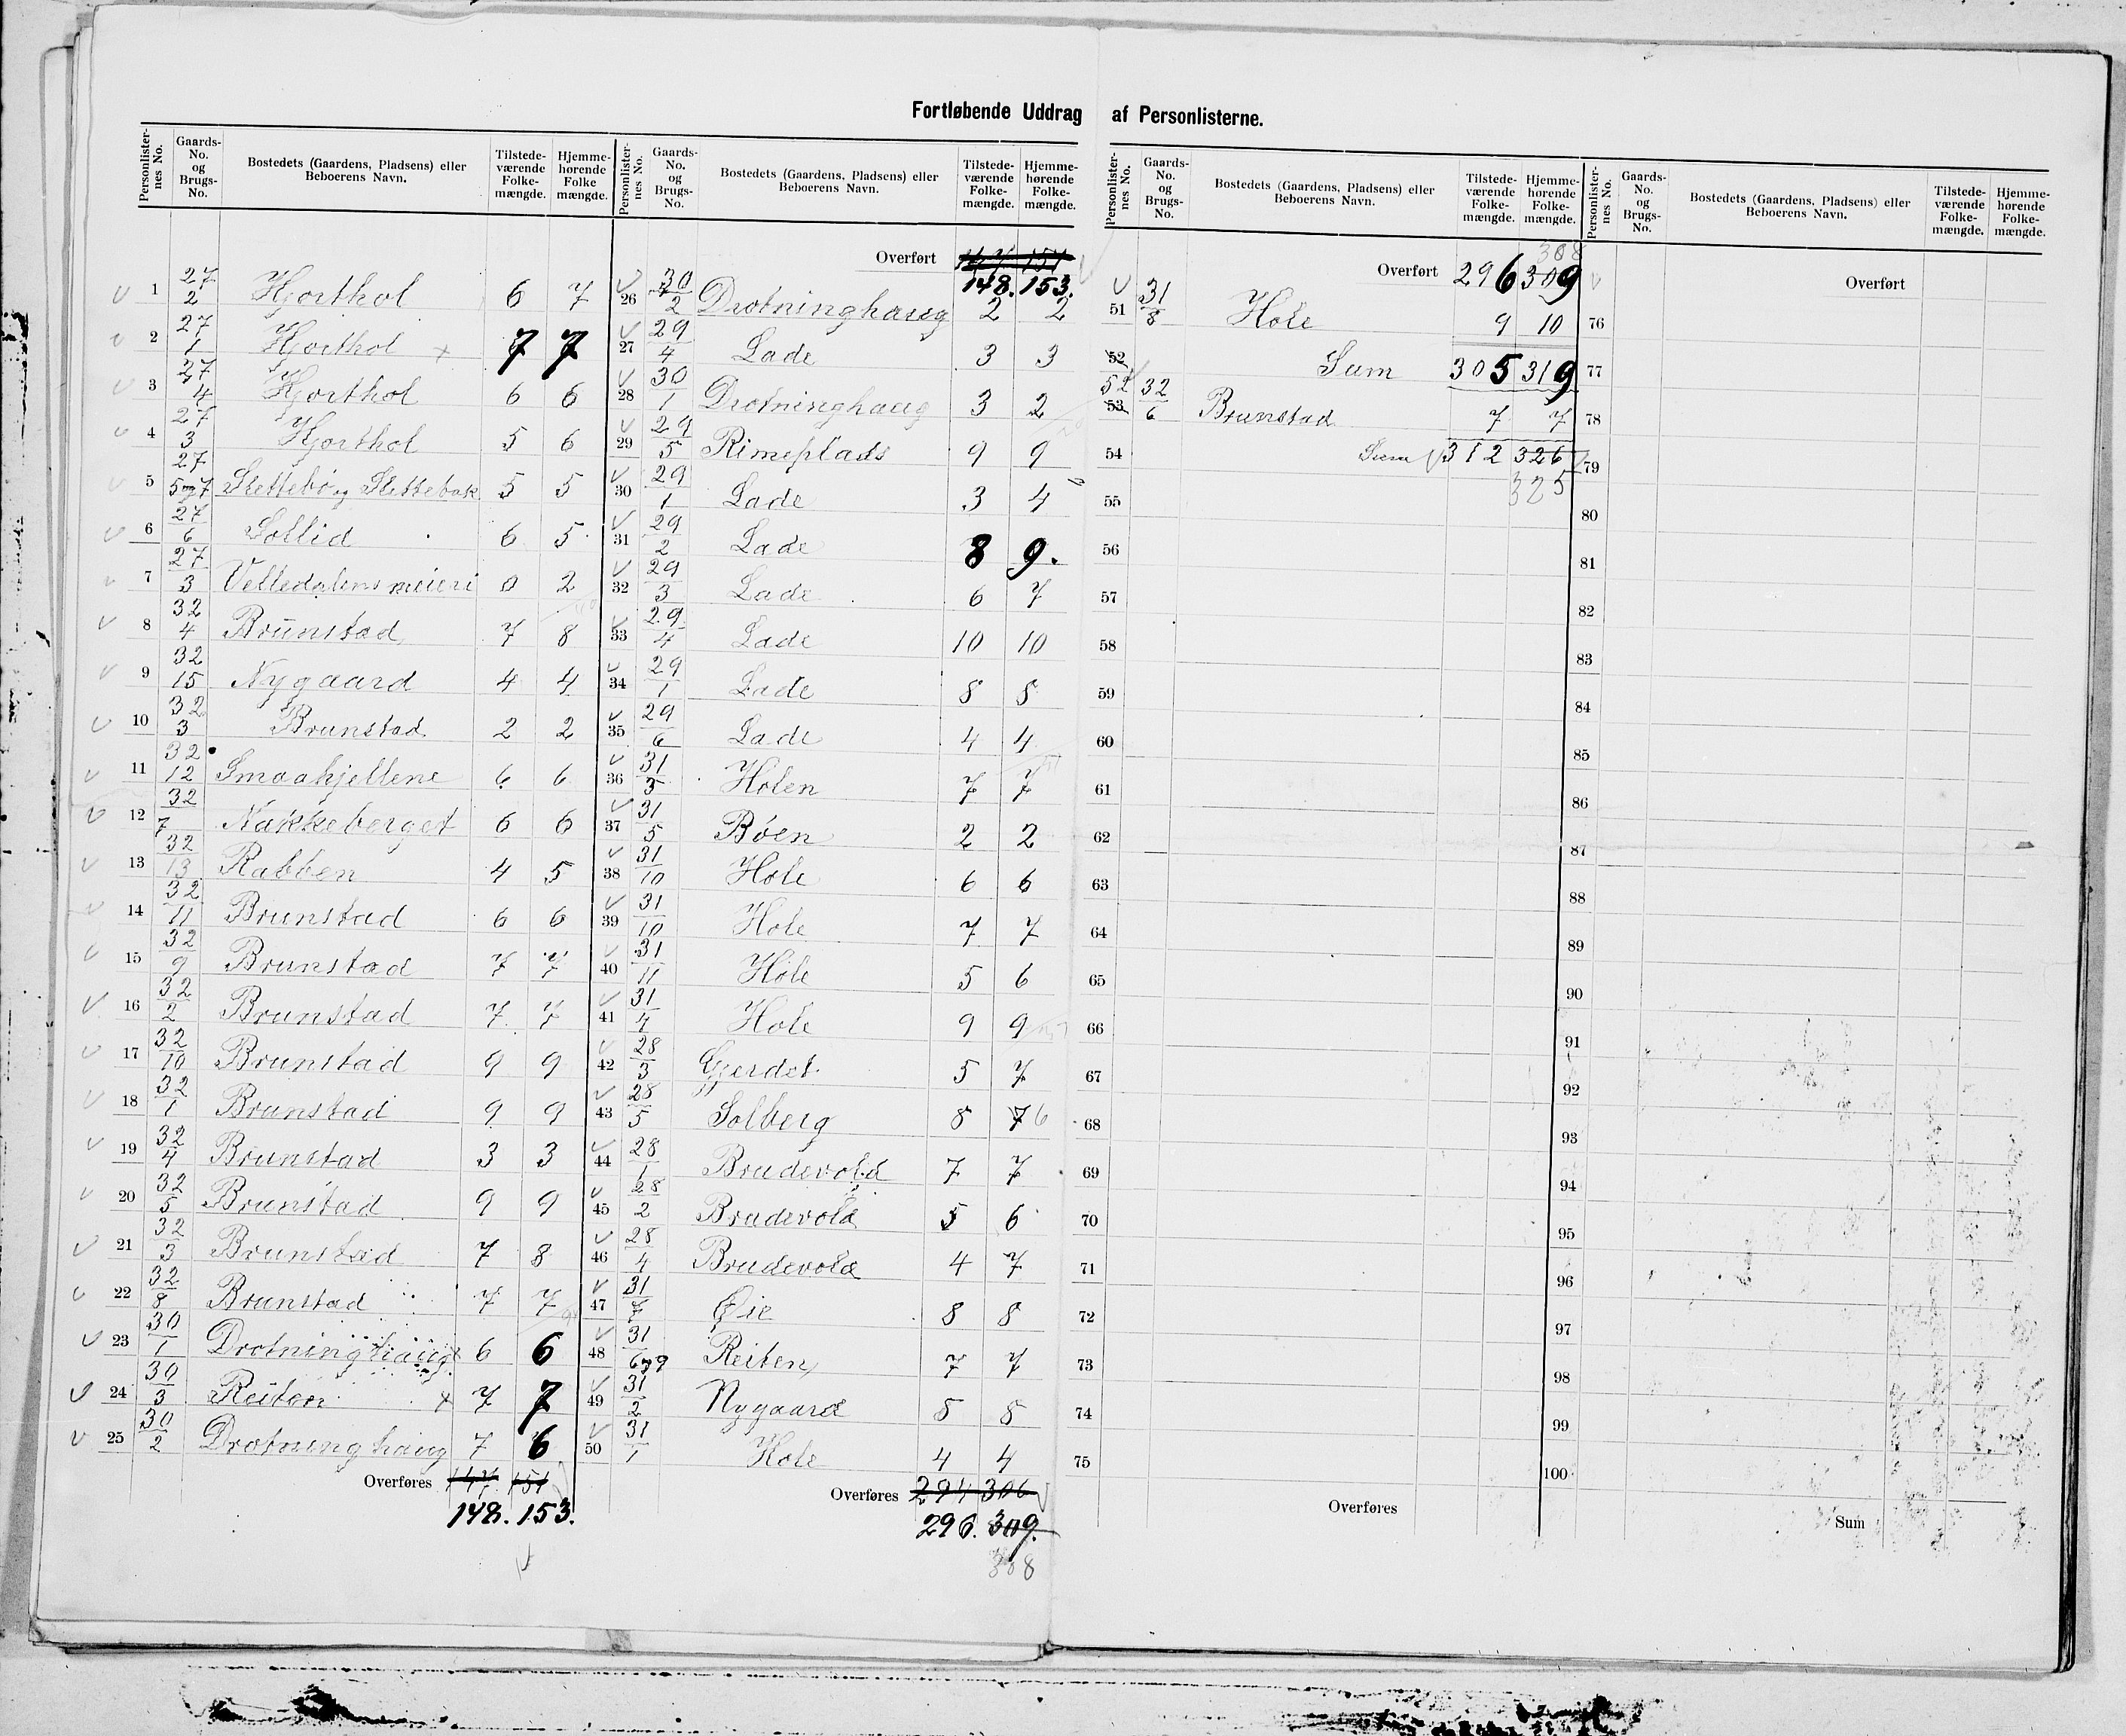 Fortløbende Uddrag af Personlisterne.
Personlisternes No. Gaards-No. og Brugs-No. Bostedets (Gaardens, Pladsens) eller Beboerens Navn. Tilstedeværende Folkemængde. Hjemmehørende Folke mængde.
1 27/2 Hjorthol 6 7
2 27/1 Hjorthol x 7 7
3 27/4 Hjorthol 6 6
4 27/3 Hjorthol 5 6
5 27/5og7 Slettebø og Slettebak 5 5
6 27/6 Sollid 6 5
7 27/3 Velledalens meieri 0 2
8 32/4 Brunstad 7 8
9 32/15 Nygaard 4 4
10 32/3 Brunstad 2 2
11 32/12 Smaahjellene 6 6
12 32/7 Nakkeberget 6 6
13 32/13 Rabben 4 5
14 32/11 Brunstad 6 6
15 32/9 Brunstad 7 7
16 32/2 Brunstad 7 7
17 32/10 Brunstad 9 9
18 32/1 Brunstad 9 9
19 32/4 Brunstad 3 3
20 32/5 Brunstad 9 9
21 32/3 Brunstad 7 8
22 32/8 Brunstad 7 7
23 30/1 Drotninghaug x 6 6
24 30/3 Reiten x 7 7
25 30/2 Drotninghaug 7 6
Overføres 147 151
148. 153.
Personlisternes No. Gaards-No. og Brugs-No. Bostedets (Gaardens, Pladsens) eller Beboerens Navn. Tilstedeværende Folkemængde. Hjemmehørende Folkemængde.
Overført 147 151
148. 153.
26 30/2 Drotninghaug 2 2
27 29/4 Lade 3 3
28 30/1 Drotninghaug 3 2
29 29/5 Rimeplads 9 9
30 29/1 Lade 3 4
31 29/2 Lade 8 9.
32 29/3 Lade 6 7
33 29/4 Lade 10 10
34 29/1 Lade 8 8
35 29/6 Lade 4 4
36 31/3 Holen 7 7
37 31/5 Bøen 2 2
38 31/10 Hole 6 6
39 31/10 Hole 7 7
40 31/11 Hole 5 6
41 31/4 Hole 9 9
42 28/3 Gjerdet 5 7
43 28/5 Solberg 8 7 6
44 28/1 Brudevold 7 7
45 28/2 Brudevold 5 6
46 28/4 Brudevold 4 7
47 31/7 Øie 8 8
48 31/6og9 Reiten 7 7
49 31/2 Nygaard 8 8
50 31/1 Hole 4 4
Overføres 294 306
296. 309.
308
Personlisternes No. Gaards-No. og Brugs-No. Bostedets (Gaardens, Pladsens) eller Beboerens Navn. Tilstedeværende Folkemængde. Hjemmehørende Folkemængde.
308
Overført 296 309
51 31/8 Hole 9 10
52 Sum 305 319
52 53 32/6 Brunstad 7 7
54 Sum 312 326
325
55
56
57
58
59
60
61
62
63
64
65
66
67
68
69
70
71
72
73
74
75
Overføres
Personlisternes No. Gaards-No. og Brugs-No. Bostedets (Gaardens, Pladsens) eller Beboerens Navn. Tilstedeværende Folkemængde. Hjemmehørende Folkemængde.
Overført
76
77
78
79
80
81
82
83
84
85
86
87
88
89
90
91
92
93
94
95
96
97
98
99
100
Sum